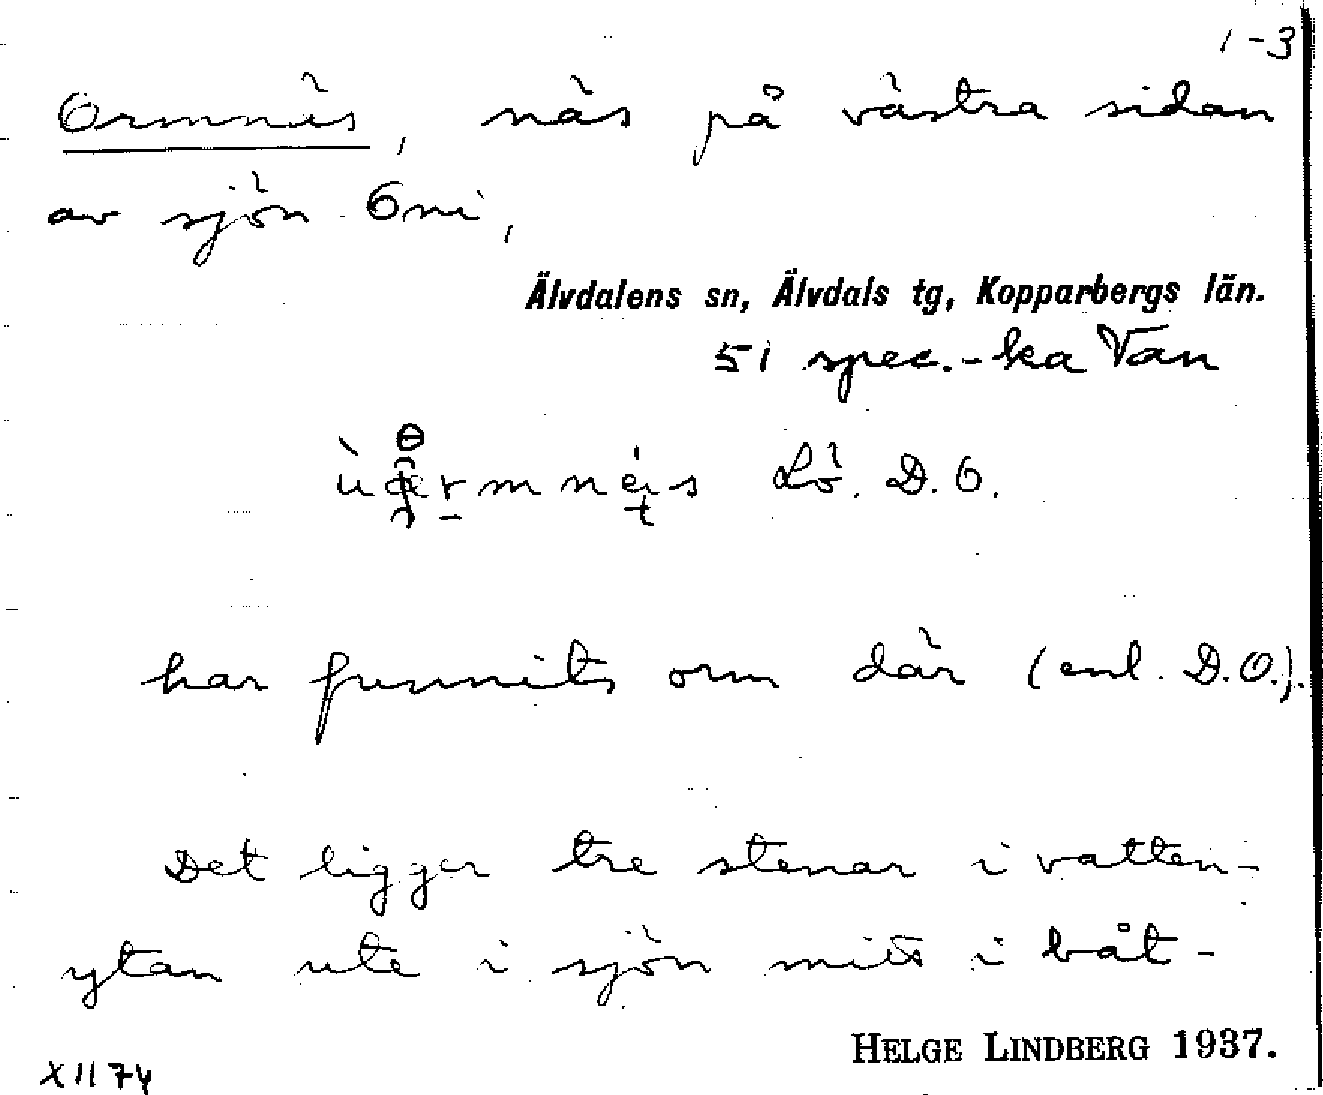 1-3
Ormnäs, näs på västra sidan
av sjön Omi,
Älvdalens sn, Älvdals tg, Kopparbergs län.
51 spec.-ka Van
Lö. D. O.
har funnits orm där (enl. D.O.).
Det ligger tre stenar i vatten-
ytan ute i sjön mitt i båt-
HELGE LINDBERG 1937.
XII 74